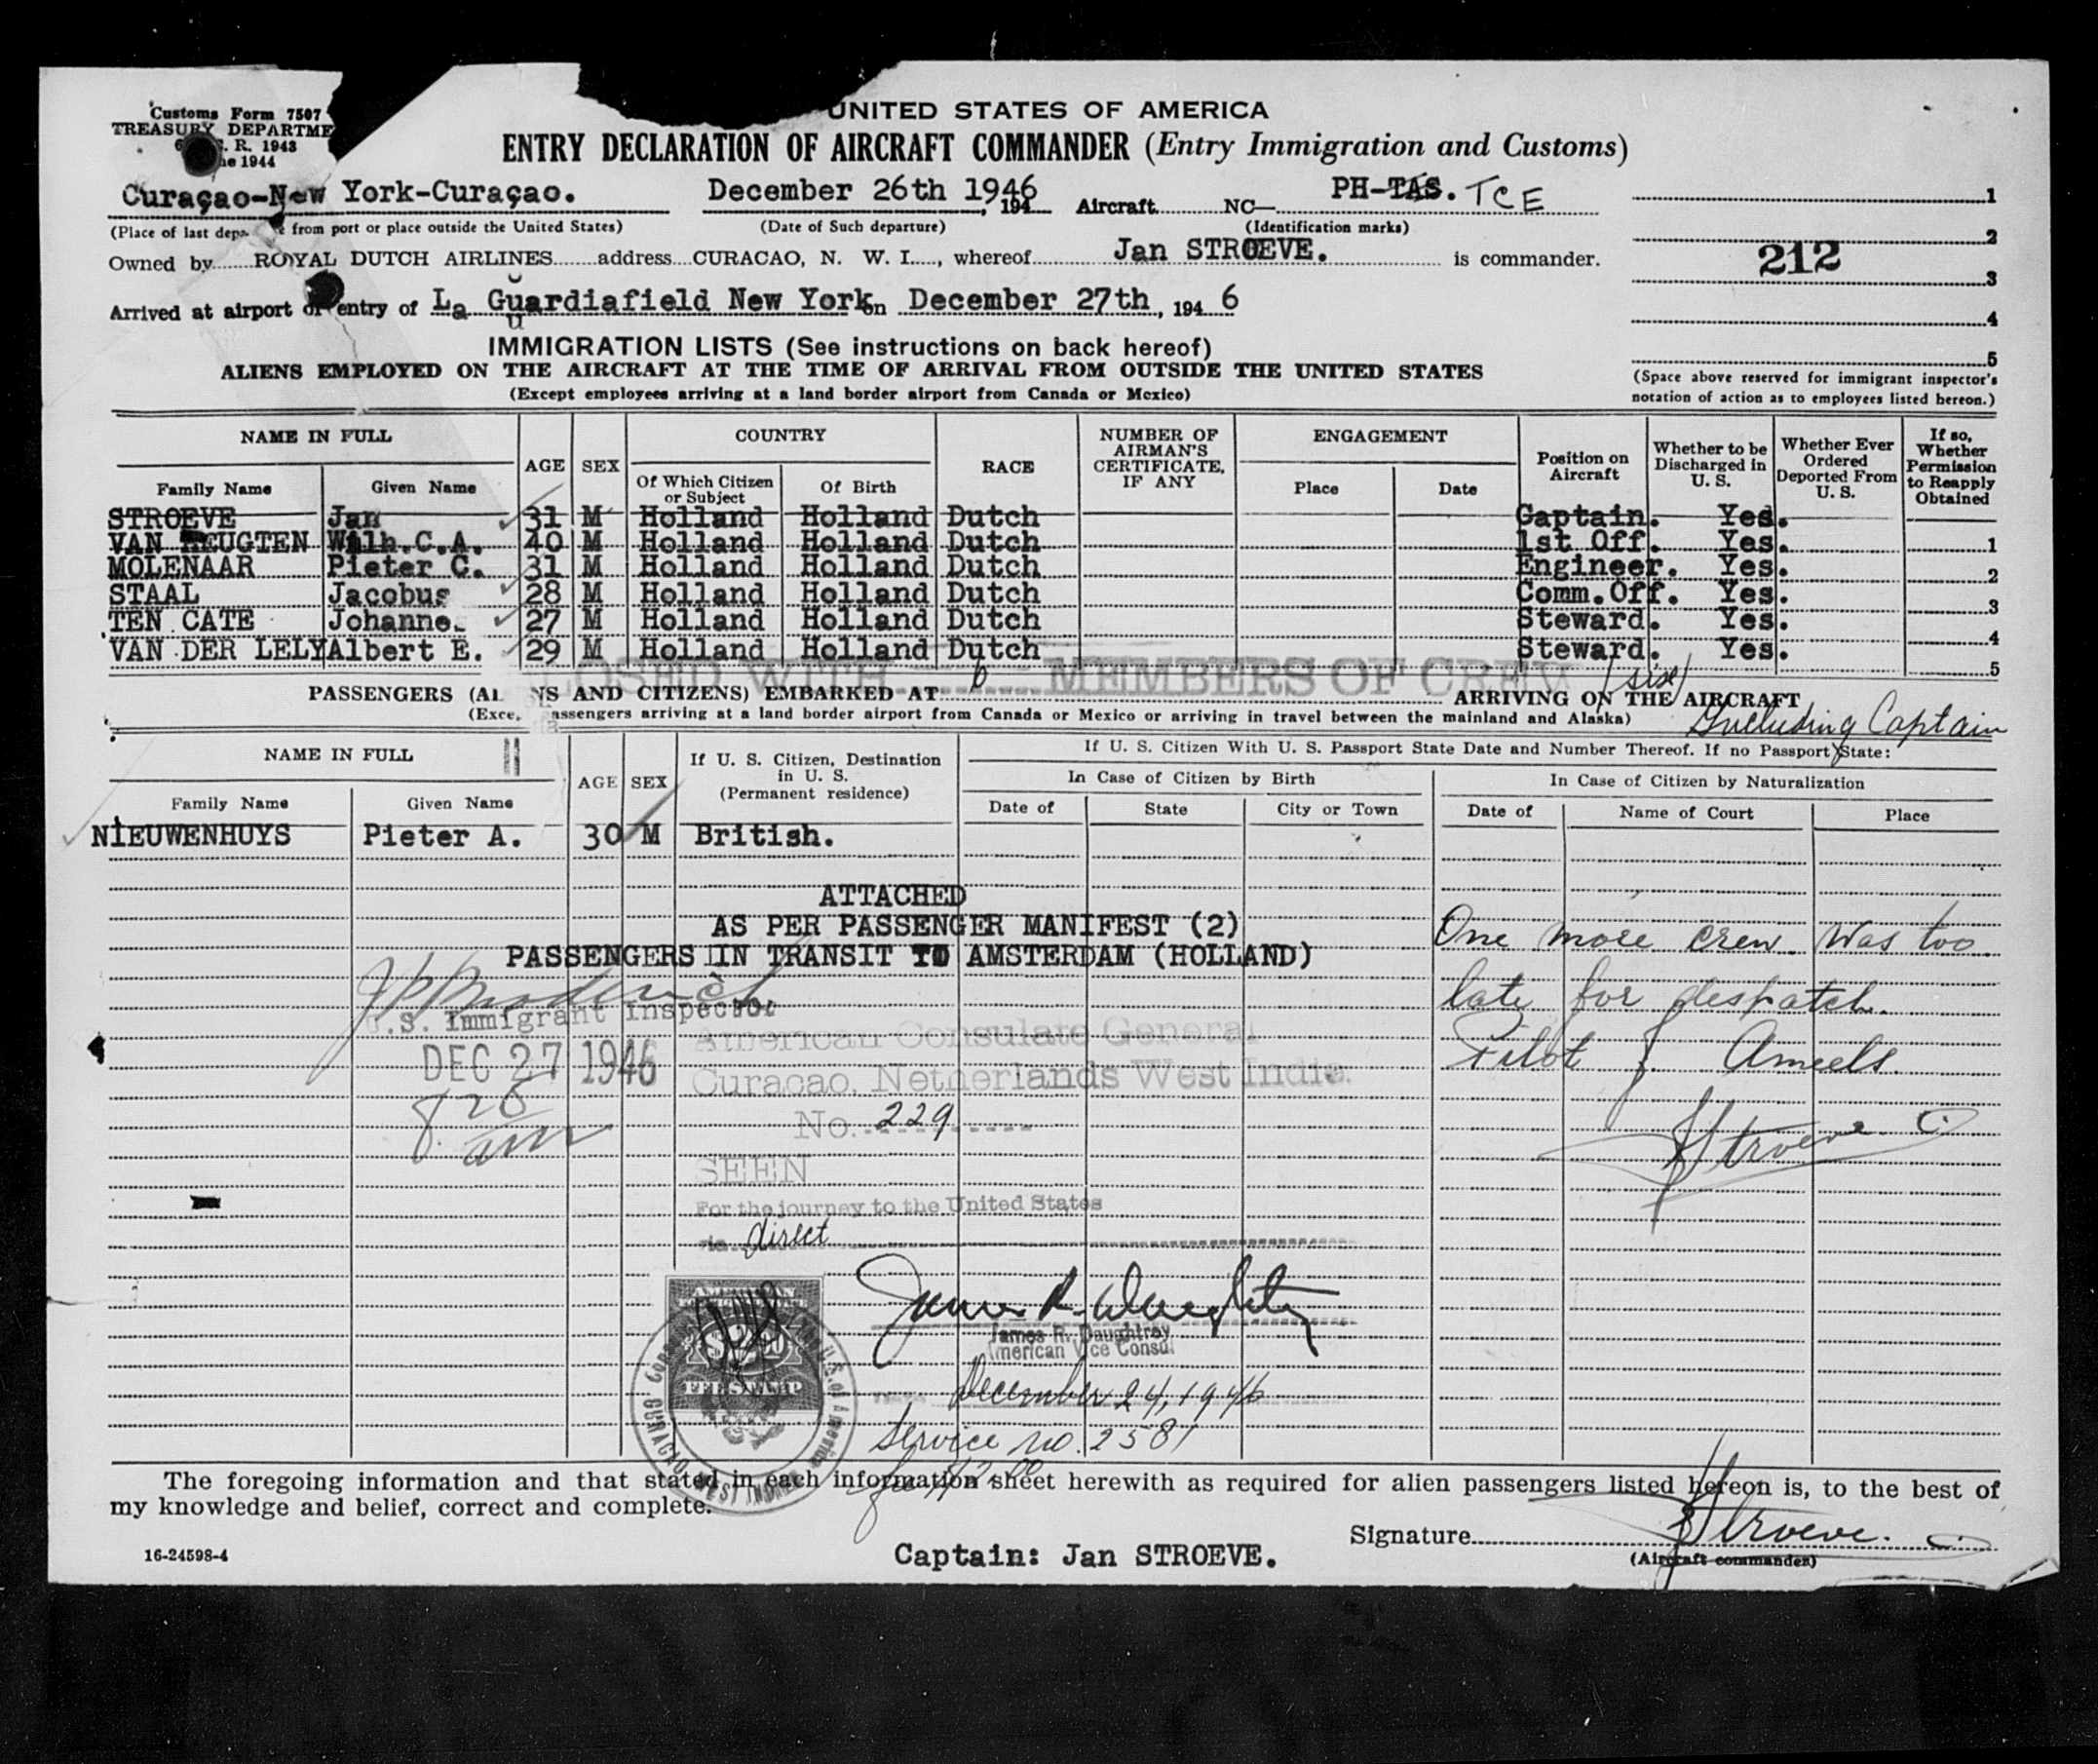 Customs Form 7507
UNITED STATES OF AMERICA
TREASURY DEPARTME
ENTRY DECLARATION OF AIRCRAFT COMMANDER (Entry Immigration and Customs)
C. R. 1943
ne 1944
Curaçao-New York-Curaçao. December 26th 1946, 194 Aircraft NC— PH-TAS. TCE
(Place of last depa e from port or place outside the United States) (Date of Such departure) (Identification marks)
Owned by ROYAL DUTCH AIRLINES address CURACAO, N. W. I., whereof Jan STROEVE. is commander.
Arrived at airport of entry of La Guardiafield New York on December 27th, 194 6
u
1
2
212
3
4
5
(Space above reserved for immigrant inspector's
notation of action as to employees listed hereon.)
IMMIGRATION LISTS (See instructions on back hereof)
ALIENS EMPLOYED ON THE AIRCRAFT AT THE TIME OF ARRIVAL FROM OUTSIDE THE UNITED STATES
(Except employees arriving at a land border airport from Canada or Mexico)
NAME IN FULL AGE SEX COUNTRY RACE NUMBER OF AIRMAN'S CERTIFICATE, IF ANY ENGAGEMENT Position on Aircraft Whether to be Discharged in U. S. Whether Ever Ordered Deported From U. S. If so, Whether Permission to Reapply Obtained
Family Name Given Name Of Which Citizen or Subject Of Birth Place Date
STROEVE Jan 31 M Holland Holland Dutch Captain. Yes.
VAN HEUGTEN Wilh.C.A. 40 M Holland Holland Dutch 1st Off. Yes. 1
MOLENAAR Pieter C. 31 M Holland Holland Dutch Engineer. Yes. 2
STAAL Jacobus 28 M Holland Holland Dutch Comm.Off. Yes. 3
TEN CATE Johanne 27 M Holland Holland Dutch Steward. Yes. 4
VAN DER LELY Albert E. 29 M Holland Holland Dutch Steward. Yes. 5
LOSED WITH 6 MEMBERS OF CREW (six)
PASSENGERS (AL NS AND CITIZENS) EMBARKED AT ARRIVING ON THE AIRCRAFT
(Exce assengers arriving at a land border airport from Canada or Mexico or arriving in travel between the mainland and Alaska)
Including Captain
NAME IN FULL AGE SEX If U. S. Citizen, Destination in U. S. (Permanent residence) If U. S. Citizen With U. S. Passport State Date and Number Thereof. If no Passport State:
In Case of Citizen by Birth In Case of Citizen by Naturalization
Family Name Given Name Date of State City or Town Date of Name of Court Place
NIEUWENHUYS Pieter A. 30 M British.
ATTACHED
AS PER PASSENGER MANIFEST (2)
PASSENGERS IN TRANSIT TO AMSTERDAM (HOLLAND)
One more crew was too
late for despatch.
Pilot J. Ameels.
JStroeve
U.S. Immigrant Inspector
DEC 27 1946
8 20
am
American Consulate General
Curacao, Netherlands West Indie
No. 229
SEEN
For the journey to the United States
via direct
AMERICAN
$2.00
FEE STAMP
CURACAO, WEST INDIES
U.S. of America
James R. Daughtrey
James R. Daughtrey
American Vice Consul
December 24, 1946
Service no. 2581
fee $2.00
The foregoing information and that stated in each information sheet herewith as required for alien passengers listed hereon is, to the best of
my knowledge and belief, correct and complete.
Signature JStroeve.
(Aircraft commander)
16-24598-4
Captain: Jan STROEVE.